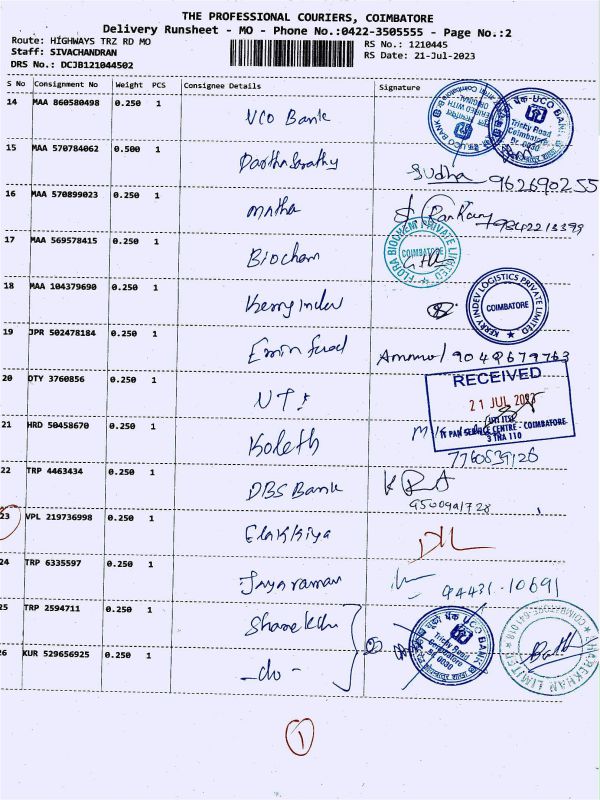 THE PROFESSIONAL COURIERS, COIMBATORE
Delivery Runsheet - MO - Phone No.:0422-3505555 - Page No.:2
Route: HIGHWAYS TRZ RD MO
Staff: SIVACHANDRAN
DRS No.: DCJB121044502
RS No.: 1210445
RS Date: 21-Jul-2023
S No Consignment No Weight PCS Consignee Details Signature
14 MAA 860580498 0.250 1 UCO Bank
UCO BANK
Trichy Road
Coimbatore
15 MAA 570784062 0.500 1 Parthasarathy Sudha 962690255
16 MAA 570899023 0.250 1
17 MAA 569578415 0.250 1 Biochem
FLORA BIOCHEM PRIVATE LIMITED
COIMBATORE
18 MAA 104379690 0.250 1 Kerry indev
KERRY INDEV LOGISTICS PRIVATE LIMITED
COIMBATORE
19 JPR 502478184 0.250 1 Ammu 9048679763
20 OTY 3760856 0.250 1
RECEIVED
21 JUL 2023
IT PAN SERVICE CENTRE - COIMBATORE
3 THA 110
21 HRD 50458670 0.250 1 Koleth
22 TRP 4463434 0.250 1 DBS Bank
23 VPL 219736998 0.250 1 Elakkiya
24 TRP 6335597 0.250 1 Jayaraman 94431-10691
25 TRP 2594711 0.250 1
26 KUR 529656925 0.250 1 -do-
UCO BANK
Trichy Road
Coimbatore
SHAREKHAN LIMITED
COIMBATORE-641 018
1